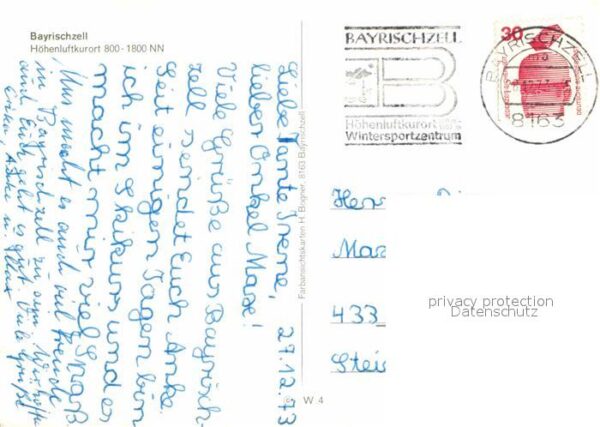 Bayrischzell
Höhenluftkurort 800 - 1800 NN
Liebe Tante Irene, 27.12.73
lieber Onkel Maxe!
Viele Grüße aus Bayrisch-
zell sendet Euch Anke.
Seit einigen Tagen bin
ich im Skikurs und es
macht mir viel Spaß.
Uns macht es auch viel Freude
in Bayrischzell zu sein. Wir hoffen
auch Euch geht es gut. Viele Grüße
Anke u.
Farbansichtskarten H. Bogner, 8163 Bayrischzell
W 4
BAYRISCHZELL
B
Höhenluftkurort
Wintersportzentrum
30
BAYRISCHZELL
8163
Herr
Max
433
Stei
privacy protection
Datenschutz